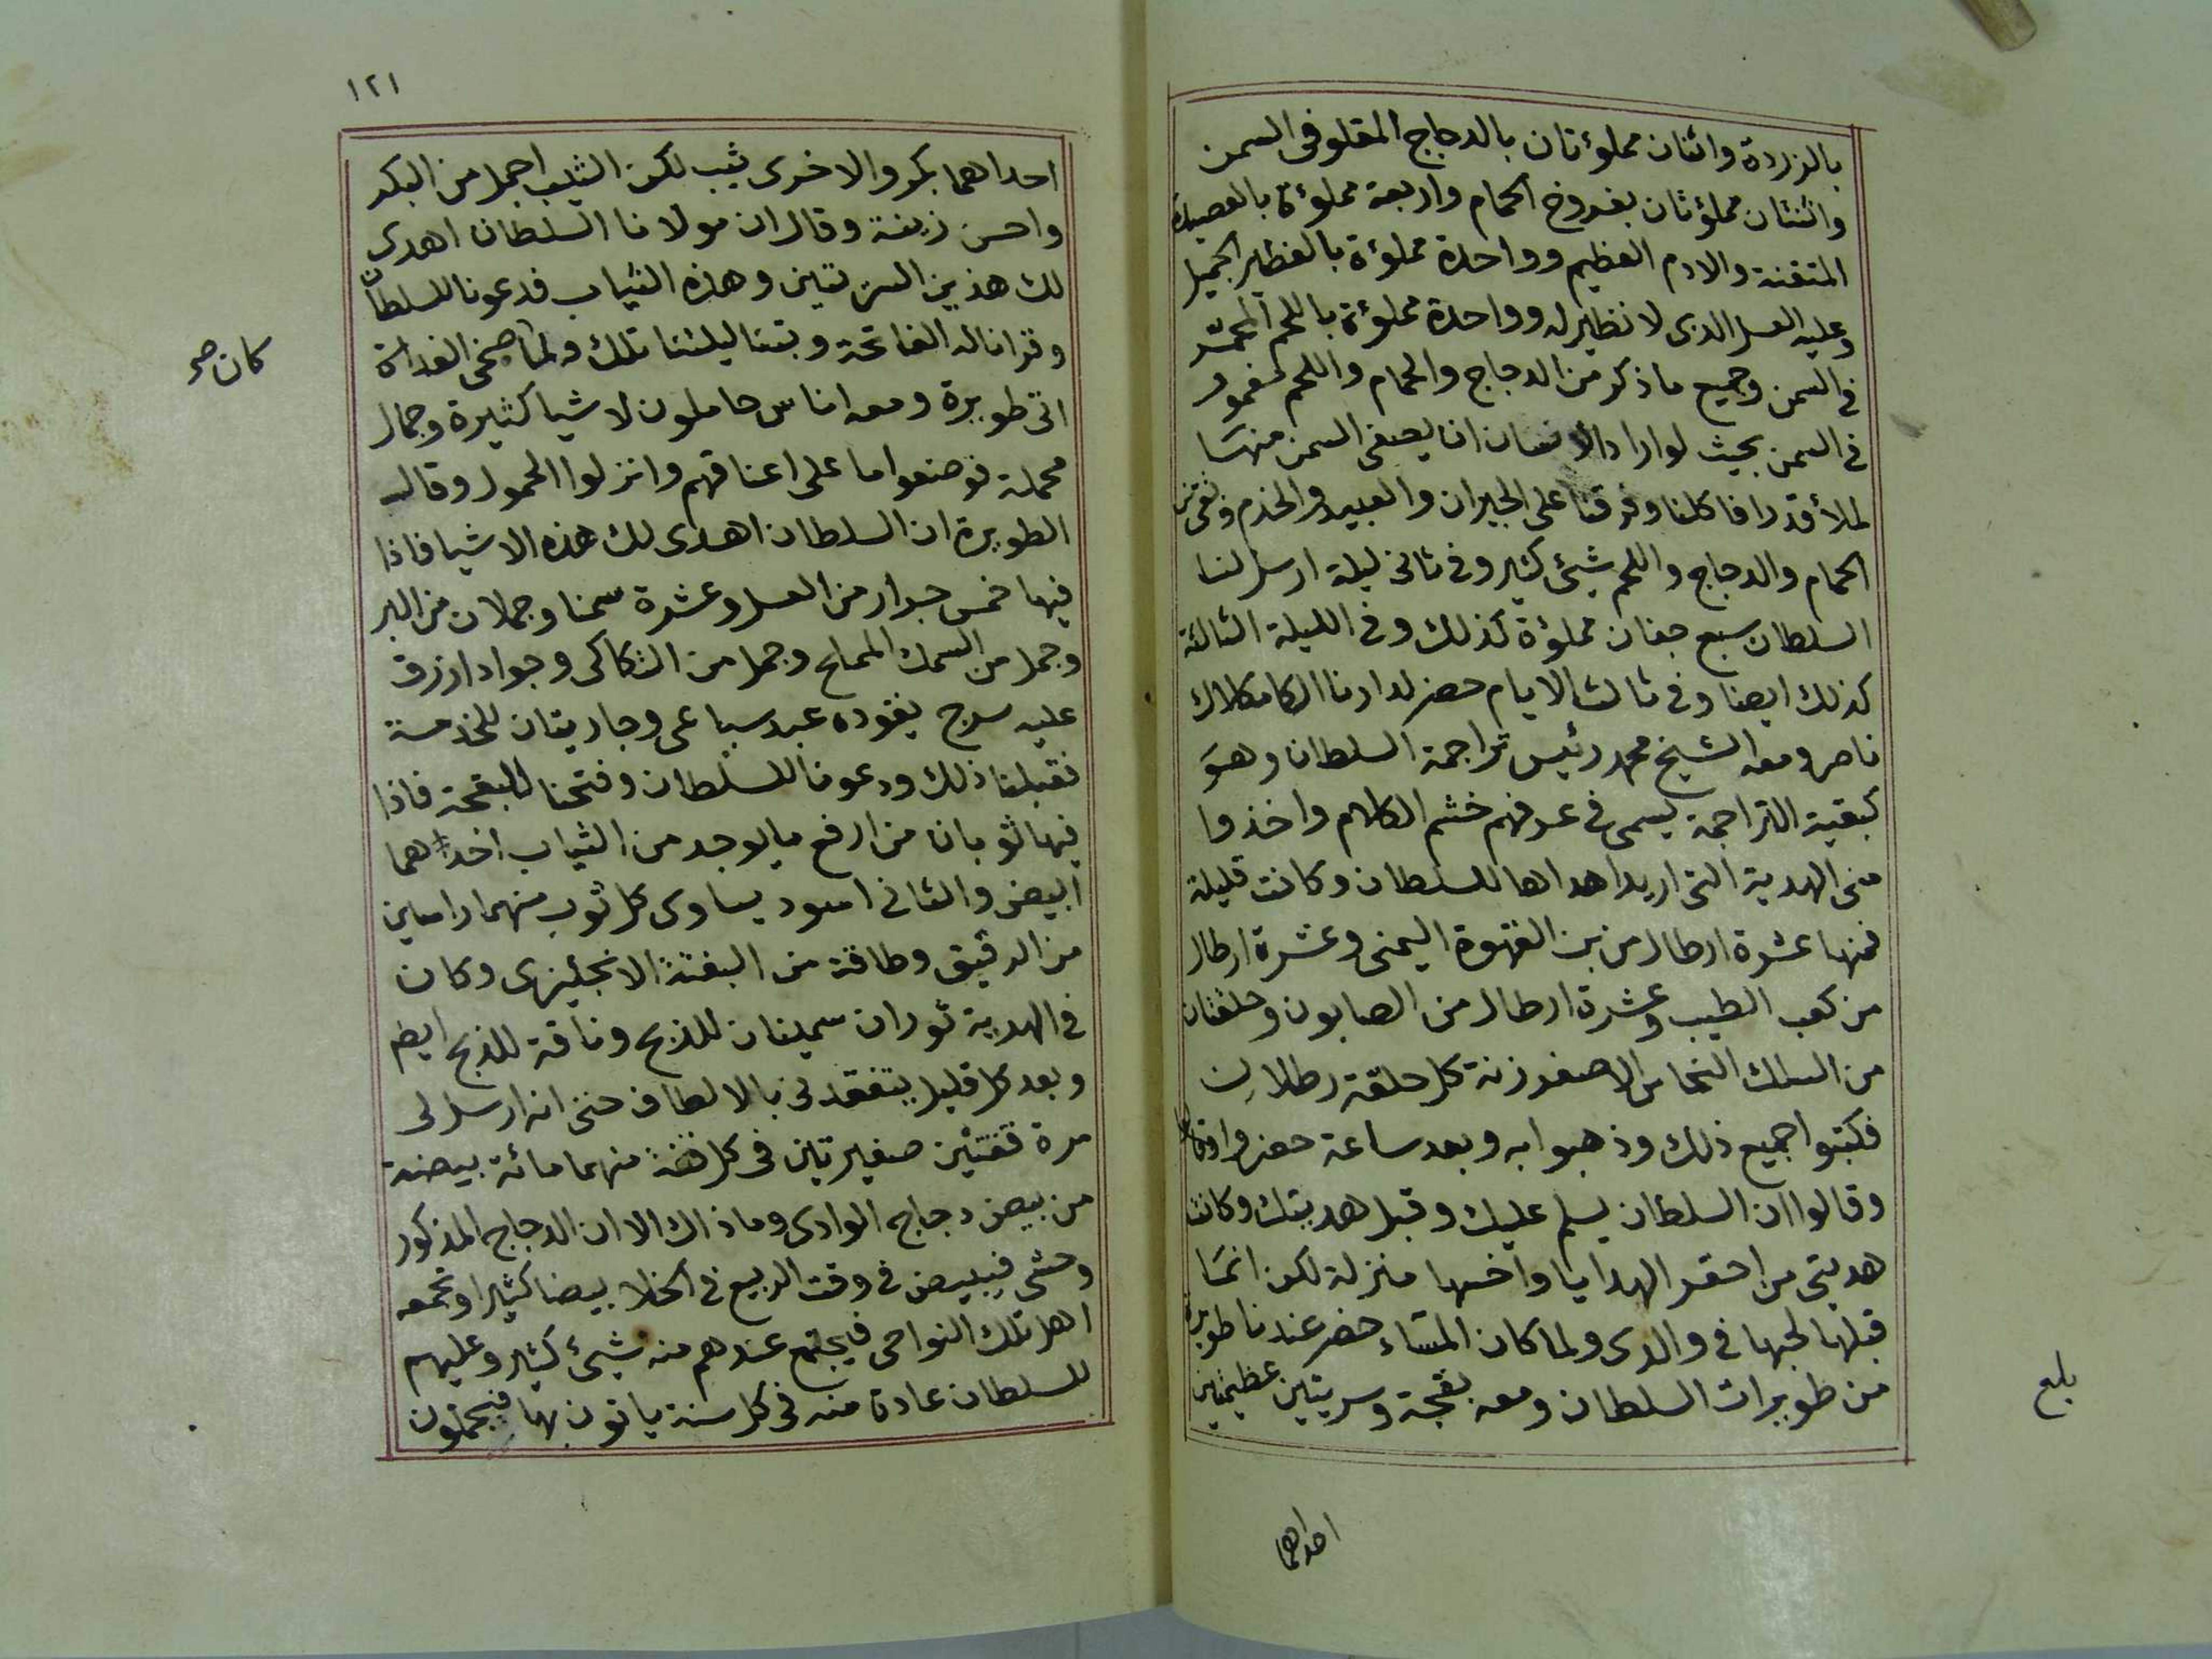 بالزردة واثنان مملوءتان بالدجاج المقلو فى السمن
واثنتان مملؤتان بفروخ الحمام واربعة مملوءة بالعصيدة
المتقنة والادم العظيم وواحدة مملوءة بالفطير الجميل
وعليه العسل الذى لا نظير له وواحدة مملوءة باللحم المحمّر
فى السمن وجميع ما ذكر من الدجاج والحمام واللحم مغمور
فى السمن بحيث لو اراد الانسان ان يصفى السمن منها
لملأ قدرا فاكلنا وفرقنا على الجيران والعبيد والخدم وبقى من
الحمام والدجاج واللحم شيئ كثير وفى ثانى ليلة ارسل لنا
السلطان سبع جفان مملؤة كذلك وفى الليلة الثالثة
كذلك ايضا وفى ثالث الايام حضر لدارنا الكامكلاك
ناصر ومعه الشيخ محمد رئيس تراجمة السلطان وهو
كبقية التراجمة يسمى فى عرفهم خشم الكلام واخذوا
منى الهدية التى اريد اهداها للسلطان وكانت قليلة
فمنها عشرة ارطال من بن القهوة اليمنى وعشرة ارطال
من كعب الطيب وعشرة ارطال من الصابون وحلقتان
من السلك النحاس الاصفر زنة كل حلقة رطلان
فكتبوا جميع ذلك وذهبوا به وبعد ساعة حضروا
وقالوا ان السلطان يسلم عليك وقبل هديتك وكانت
هديتى من احقر الهدايا واخسها منزلة لكن انما
قبلها لحبها فى والدى ولما كان المساء حضر عندنا طويرة
من طويرات السلطان ومعه بقجة وسريتين عظيمتين
احداهما
بلغ
١٢١
احداهما بكر والاخرى ثيب لكن الثيب اجمل من البكر
واحسن زينة وقال ان مولانا السلطان اهدى
لك هذين السريتين وهذه الثياب فدعونا للسلطان
وقرانا له الفاتحة وبتنا ليلتنا تلك ولما ضحى الغداة
كان صح
اتى طويرة ومعه اناس حاملون لاشيا كثيرة وجمال
محملة فوضعوا ما على اعناقهم وانزلوا الحمول وقال
الطويرة ان السلطان اهدى لك هذه الاشيا فاذا
فيها خمس جرار من العسل وعشرة سمنا وجملان من البر
وجمل من السمك المملح وجمل من التكاكى وجوادا ازرق
عليه سرج يقوده عبد سباعى وجاريتان للخدمة
فقبلنا ذلك ودعونا للسلطان وفتحنا البقجة فاذا
فيها ثوبان من ارفع ما يوجد من الثياب احداهما
ابيض والثانى اسود يساوى كل ثوب منهما راسين
من الدقيق وطاقة من البفتة الانجليزى وكان
فى الهدية ثوران سمينان للذبح وناقة للذبح ايضا
وبعد كل قليل يتفقدنى بالالطاف حتى انه ارسل لى
مرة قفتين صغيرتين فى كل قفة منهما مائة بيضة
من بيض دجاج الوادى وما ذاك الا ان الدجاج المذكور
وحشى فيبيض فى وقت الربيع فى الخلا بيضا كثيرا وتجمعه
اهل تلك النواحى فيجتمع عندهم منه شيئ كثير وعليهم
للسلطان عادة منه فى كل سنة ياتون بها فيجمعون